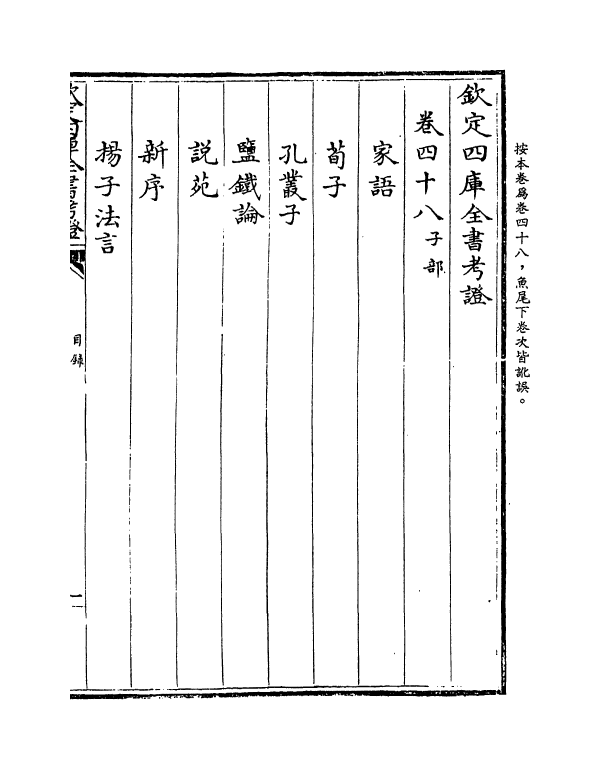 按本卷爲卷四十八，魚尾下卷次皆訛誤。
欽定四庫全書考證
卷四十八子部
家語
荀子
孔叢子
鹽鐵論
説苑
新序
揚子法言
欽定四庫全書考證
目錄
一